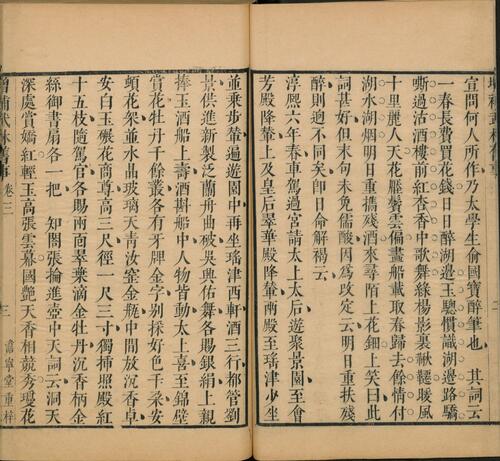 宣問何人所作乃太學生俞國寶醉筆也其詞云
一春長費買花錢日日醉湖邊玉驄慣識湖邊路驕
嘶過沽酒樓前紅杏香中歌舞綠楊影裏鞦韆暖風
十里麗人天花壓鬢雲偏畫船載取春歸去餘情付
湖水湖烟明日重攜殘酒來尋陌上花鈿上笑曰此
詞甚好但末句未免儒酸因爲改定云明日重扶殘
醉則逈不同矣卽日命解褐云
淳熙六年春車駕過宮請太上太后遊聚景園至會
芳殿降輦上及皇后至翠華殿降輦南殿至瑤津少坐
並乘步輦遍遊園中再坐瑤津西軒酒三行都管劉
景供進新製泛蘭舟曲破吳興佑舞各賜銀絹上親
捧玉酒船上壽酒斟船中人物皆動太上喜至錦壁
賞花牡丹千餘叢各有牙牌金字别採好色千朶安
頓花架並水晶玻璃天青汝窑金瓶中間放沉香卓
安白玉碾花商尊高三尺徑一尺三寸獨揷照殿紅
十五枝隨駕官各賜兩面翠葉滴金牡丹沉香柄金
絲御書扇各一把　知閣張掄進壺中天詞云洞天
深處賞嬌紅輕玉高張雲幕國艷天香相競秀瓊花
增補武林舊事　卷三　三　䜱寧堂重梓